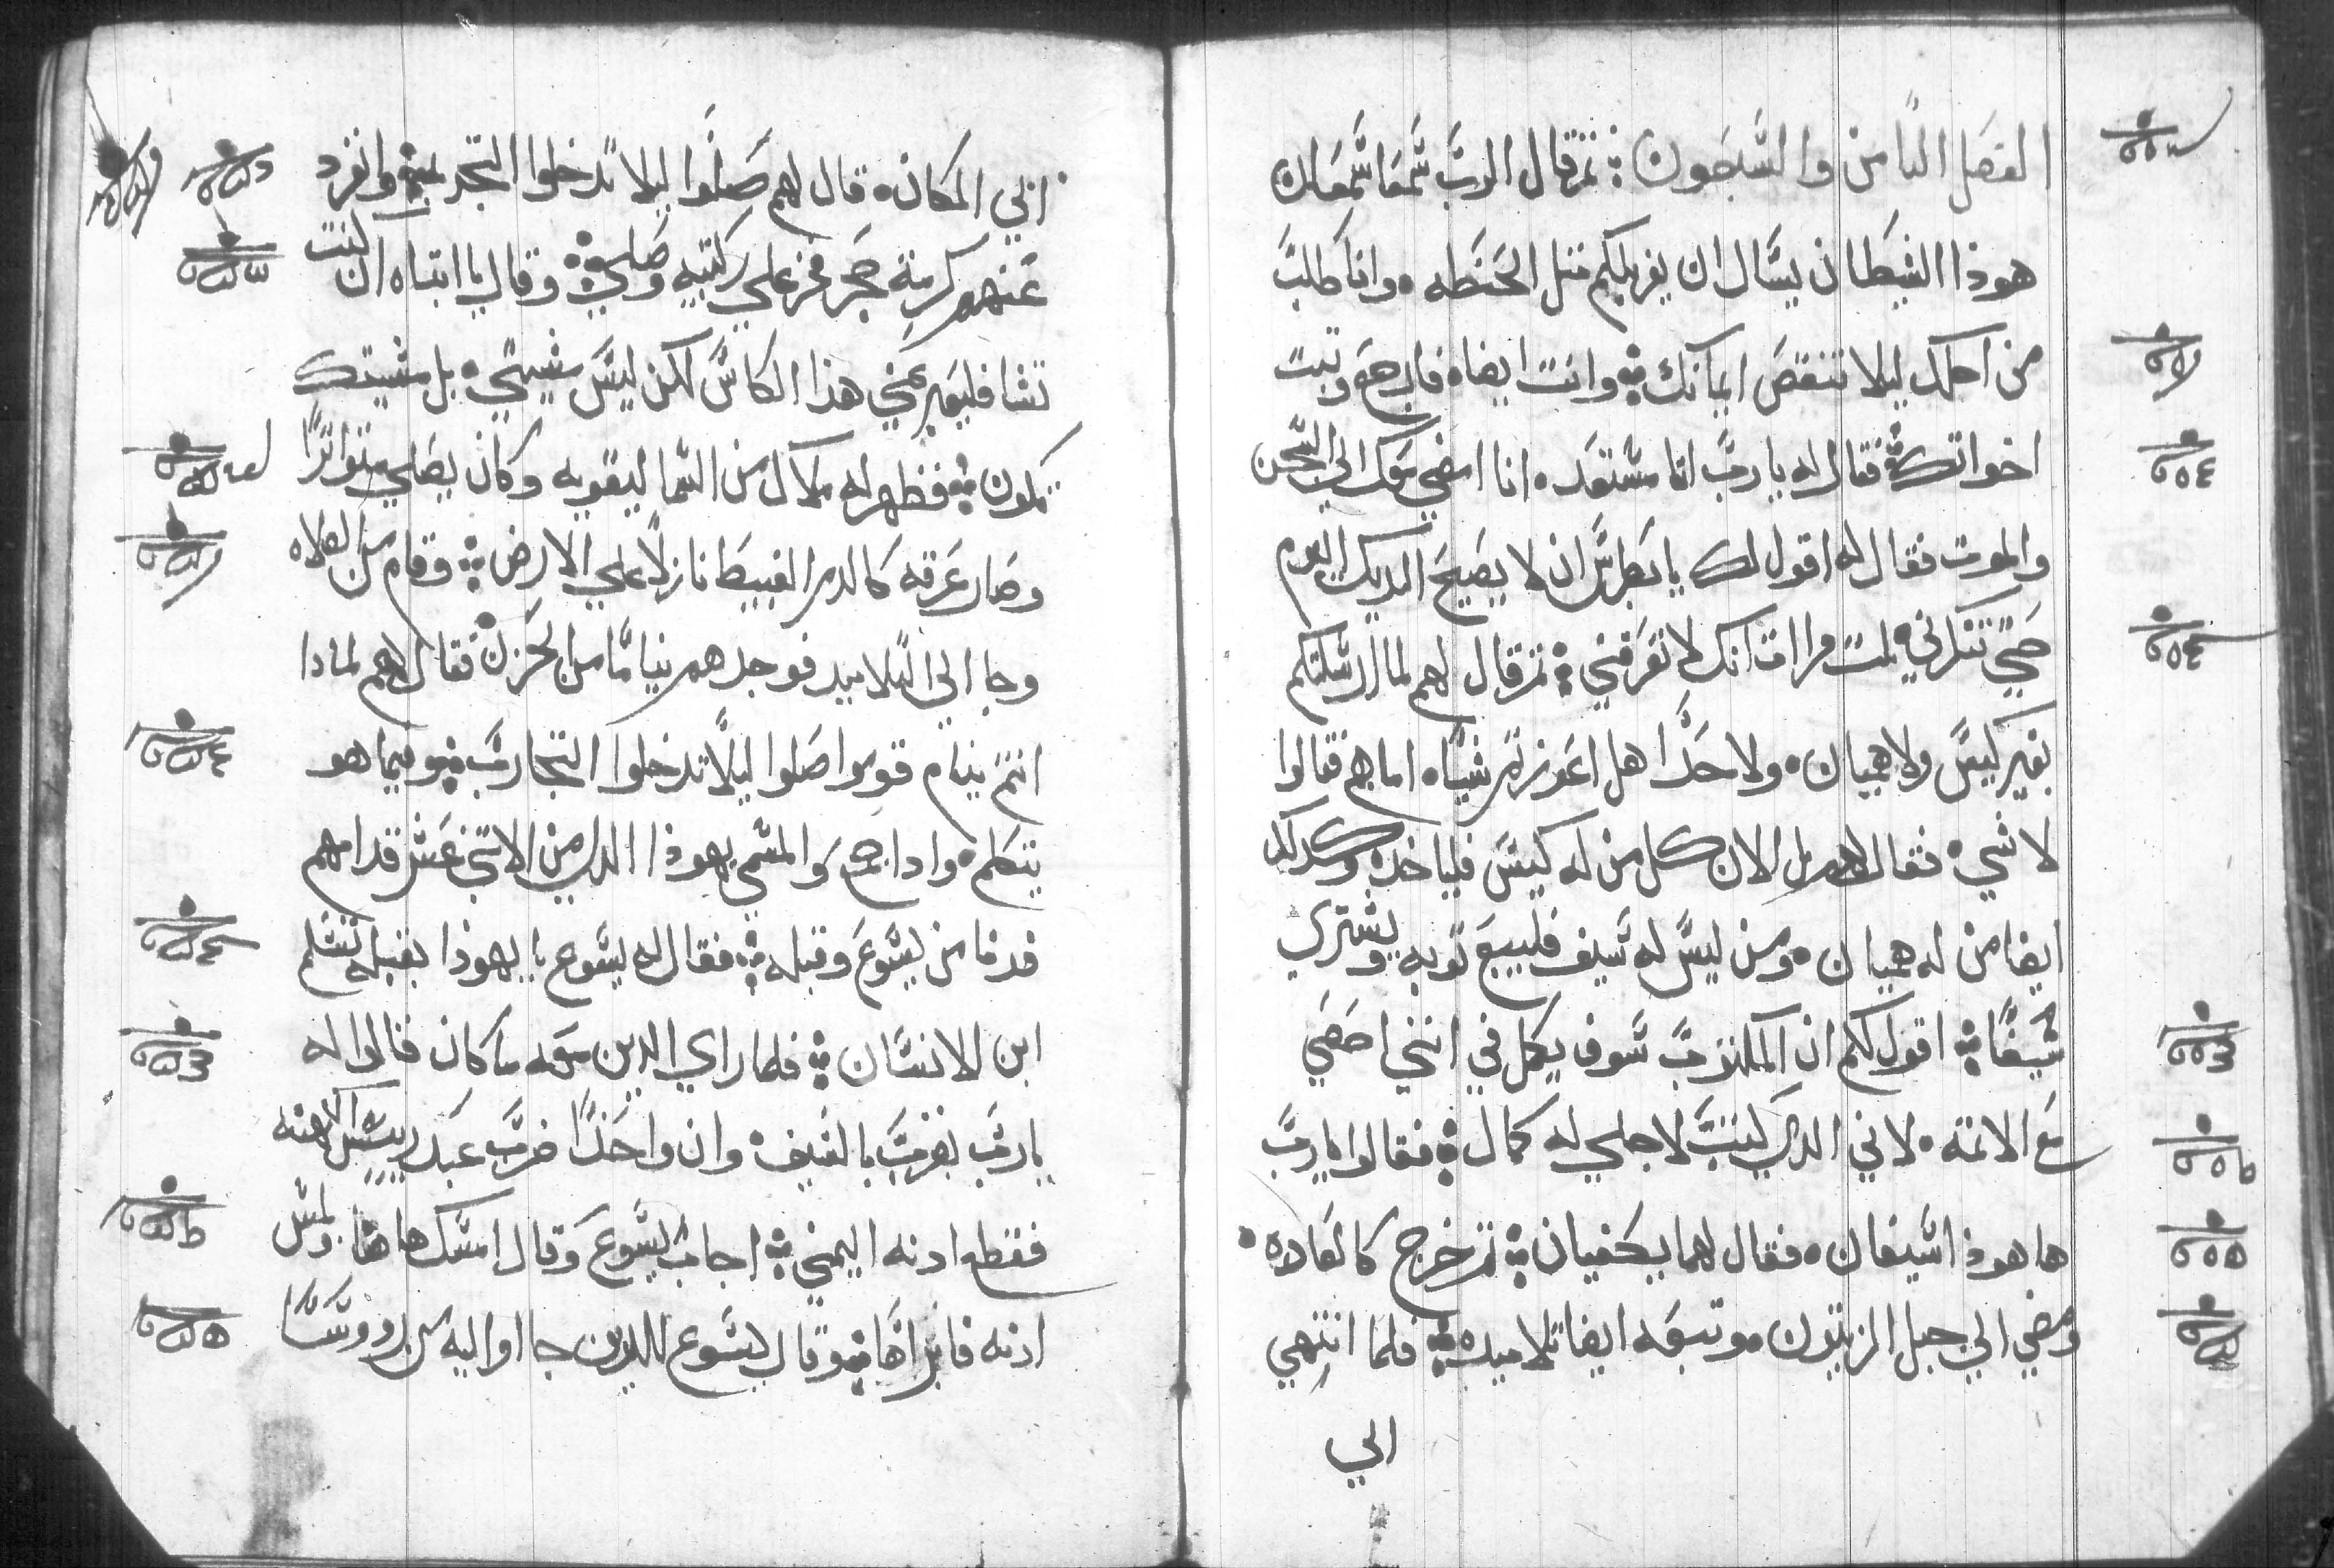 الفصل التامن والسبعون ؞ ثم قال الرب شمعا شمعان
هوذا الشيطان يسال ان يغربلكم متل الحنطه ۰ وانا طلبت
من اجلك ليلا تنقص ايمانك ؞ وانت ايضا ۰ فارجع وتبت
اخواتك ؞ فقال له يا رب انا مستعد ۰ انا امضي معك الي السجن
والموت فقال له اقول لك يا بطرس ان لا يصيح الديك اليوم
حتي تنكرني تلت مرات انك لا تعرفني ؞ ثم قال لهم لما ارسلتكم
بغير كيس ولا هميان ۰ ولا حدا هل اعوزتم شيا ۰ اما هم فقالوا
لا شي ۰ فقال لهم بل الان كل من له كيس فلياخده وكدلك
ايضا من له هميان ۰ ومن ليس له سيف فليبيع توبه ويشتري
سيفا ؞ اقول لكم ان المكتوب سوف يكمل في انني احصي
مع الاتمه ۰ لاني الدي كتبت لاجلي له كمال ؞ فقالوا يا رب
ها هوذا سيفان ۰ فقال لهما يكفيان ؞ ثم خرج كالعاده ۰
ومضي الي جبل الزيتون ۰ وتبعه ايضا تلاميده ؞ فلما انتهي
الي
الي المكان ۰ قال لهم صلوا ليلا تدخلوا التجربه ؞ وانفرد
عنهم كرمية حجر فخر علي ركبتيه وصلي ؞ وقال يا ابتاه ان كنت
تشا فليعبر عني هذا الكاس لكن ليس مشيتي ۰ بل مشيتك
تكون ؞ فظهر له ملاك من السما ليقويه وكان يصلي متواترا
وصار عرقه كالدم العبيط نازلا علي الارض ؞ وقام من الصلاه
وجا الي التلاميد فوجدهم نياما من الحزن فقال لهم لمادا
انتم نيام قوموا صلوا ليلا تدخلوا التجارب ؞ وفيما هو
يتكلم ۰ وادا جمع والمسمي يهوذا الدي من الاتني عشر قدامهم
فدنا من يسوع وقبله ؞ فقال له يسوع يا يهوذا بقبله تسلم
ابن الانسان ؞ فلما راي الدين معه ما كان قالوا له
يا رب نضرب بالسيف ۰ وان واحدا ضرب عبد رييس الكهنه
فقطع ادنه اليمني ؞ اجاب يسوع وقال امسك هاهنا ولمس
ادنه فابراها ؞ وقال يسوع للدين جااوا اليه من رووسا